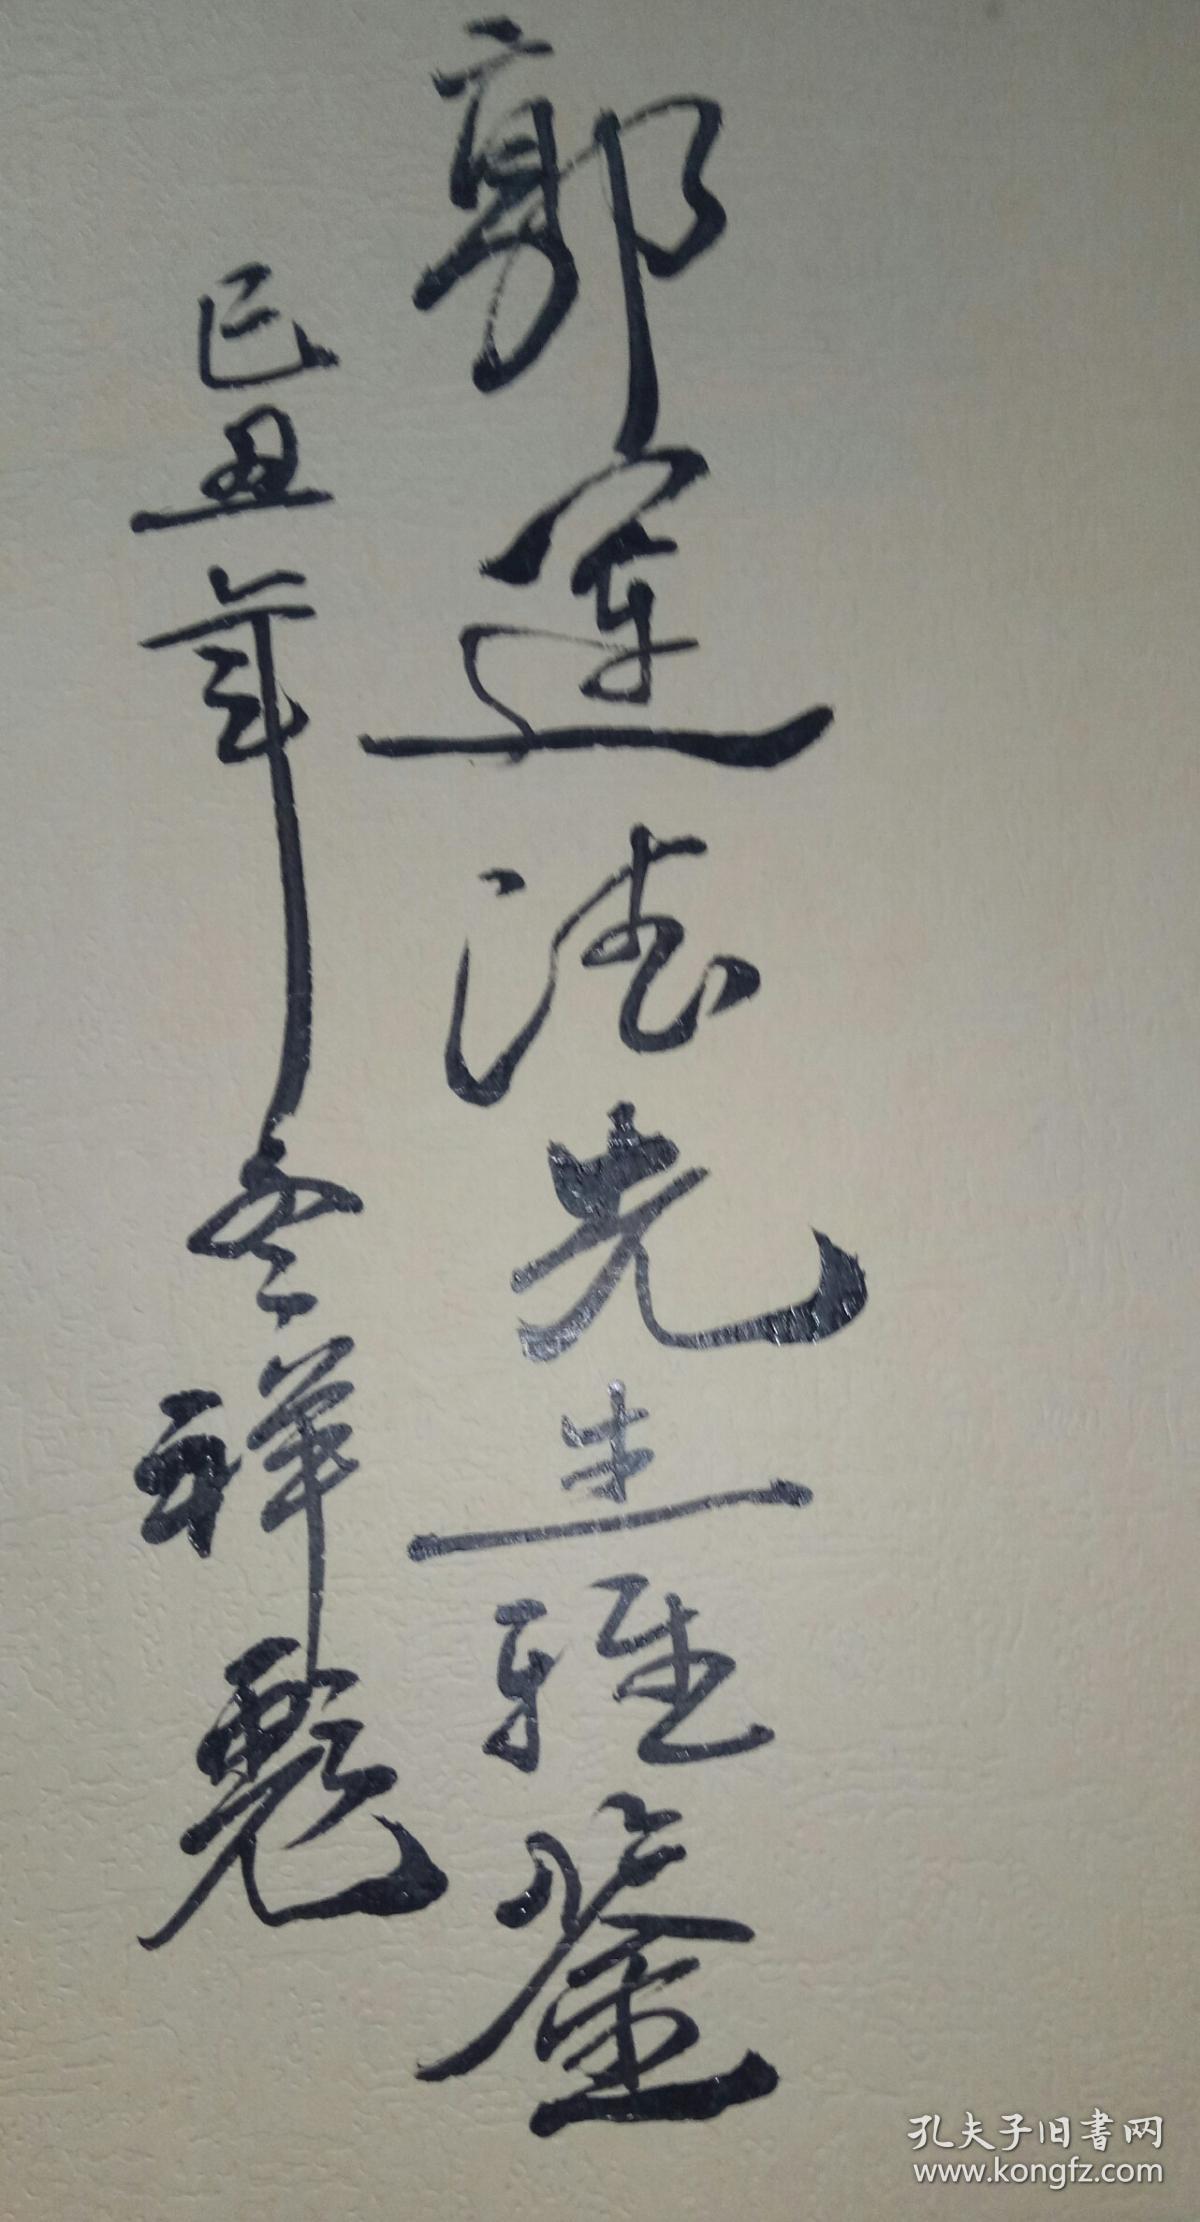 郭运法先生雅鉴
己丑年冬祥
孔夫子旧書网
www.kongfz.com